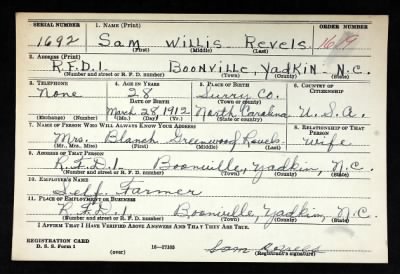 SERIAL NUMBER 1. NAME (Print) ORDER NUMBER
1692 Sam Willis Revels 1619
(First) (Middle) (Last)
2. ADDRESS (Print)
R.F.D.1. Boonville, Yadkin N.C.
(Number and street or R. F. D. number) (Town) (County) (State)
3. TELEPHONE 4. AGE IN YEARS 5. PLACE OF BIRTH 6. COUNTRY OF CITIZENSHIP
None 28 Surry Co.
DATE OF BIRTH (Town or county)
March 28 1912 North Carolina U.S.A.
(Exchange) (Number) (Mo.) (Day) (Yr.) (State or country)
7. NAME OF PERSON WHO WILL ALWAYS KNOW YOUR ADDRESS 8. RELATIONSHIP OF THAT PERSON
Mrs. Blanch Greenwood Revels wife
(Mr., Mrs., Miss) (First) (Middle) (Last)
9. ADDRESS OF THAT PERSON
R.F.D.1. Boonville, Yadkin, N.C.
(Number and street or R. F. D. number) (Town) (County) (State)
10. EMPLOYER'S NAME
Self. Farmer
11. PLACE OF EMPLOYMENT OR BUSINESS
R.F.D.1. Boonville, Yadkin, N.C.
(Number and street or R. F. D. number) (Town) (County) (State)
I AFFIRM THAT I HAVE VERIFIED ABOVE ANSWERS AND THAT THEY ARE TRUE.
REGISTRATION CARD
D. S. S. Form 1 (over) 16—17105 Sam Revels
(Registrant's signature)